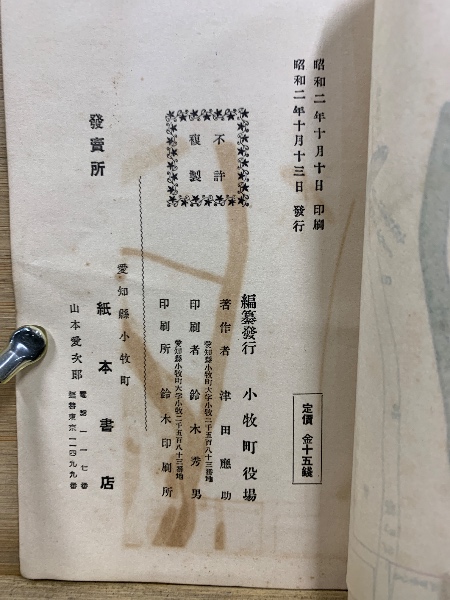 昭和二年十月十日 印刷
昭和二年十月十三日 發行
不許
複製
定價 金十五錢
編纂發行 小牧町役場
著作者 津田應助
愛知縣小牧町大字小牧二千五百八十三番地
印刷者 鈴木秀男
愛知縣小牧町大字小牧二千五百八十三番地
印刷所 鈴木印刷所
發賣所
愛知縣小牧町
紙本書店
山本愛次郎
電話一一七番
振替東京一一四九九番